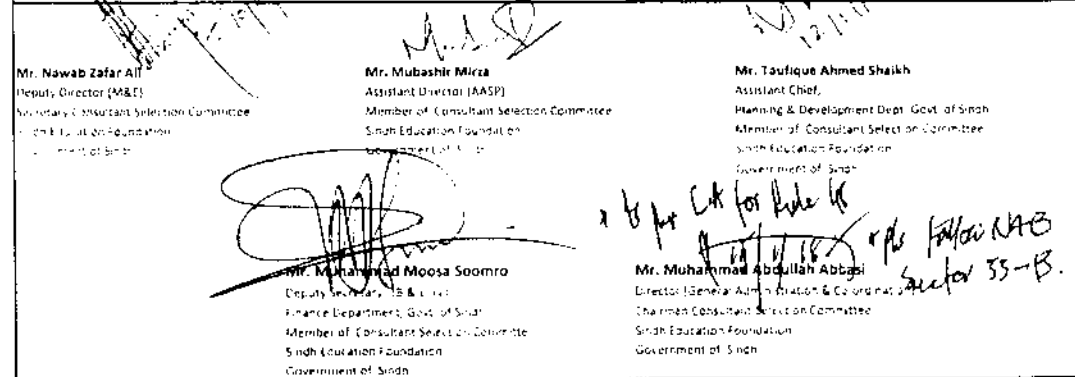 Mr. Nawab Zafar Ali
Deputy Director (M&E)
Secretary Consultant Selection Committee
Sindh Education Foundation
Government of Sindh
Mr. Mubashir Mirza
Assistant Director (AASP)
Member of Consultant Selection Committee
Sindh Education Foundation
Government of Sindh
12/11/18
Mr. Taufique Ahmed Shaikh
Assistant Chief,
Planning & Development Dept. Govt. of Sindh
Member of Consultant Selection Committee
Sindh Education Foundation
Government of Sindh
Mr. Muhammad Moosa Soomro
Deputy Secretary
Finance Department, Govt. of Sindh
Member of Consultant Selection Committe
Sindh Education Foundation
Government of Sindh
for Rule
* pls follow NAB
Sector 33-B.
Mr. Muhammad Abdullah Abbasi
Director (General Administration & Coordination)
Chairman Consultant Selection Committee
Sindh Education Foundation
Government of Sindh